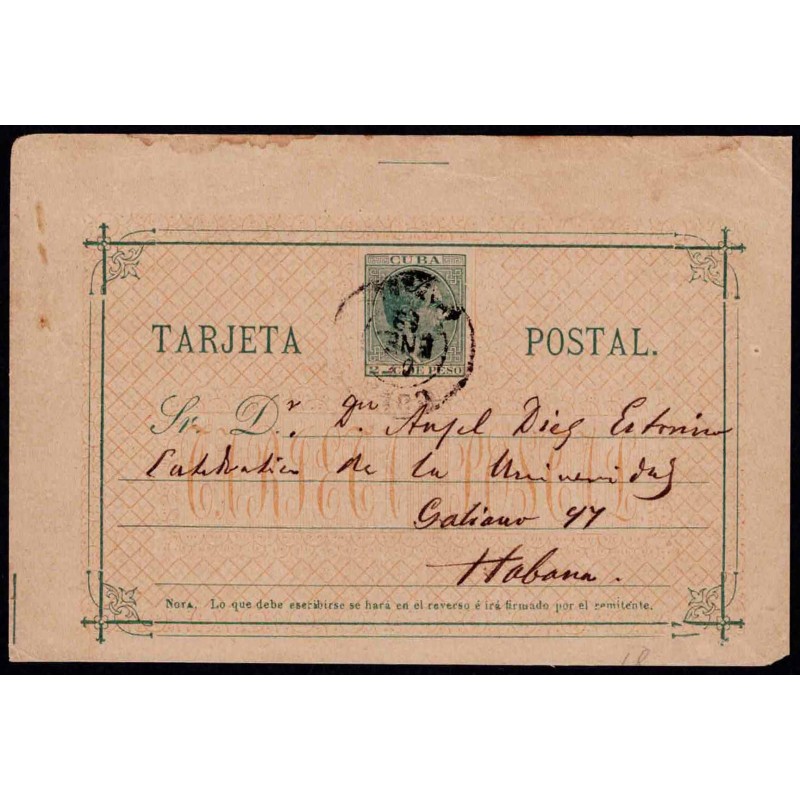 CUBA
TARJETA POSTAL.
2 C. DE PESO
ENE
83
Sr. D. Dr. Dn Angel Diez Estorino
Catedratico de la Universidad
Galiano 97
Habana.
TARJETA POSTAL
NOTA. Lo que debe escribirse se hará en el reverso é irá firmado por el remitente.
18